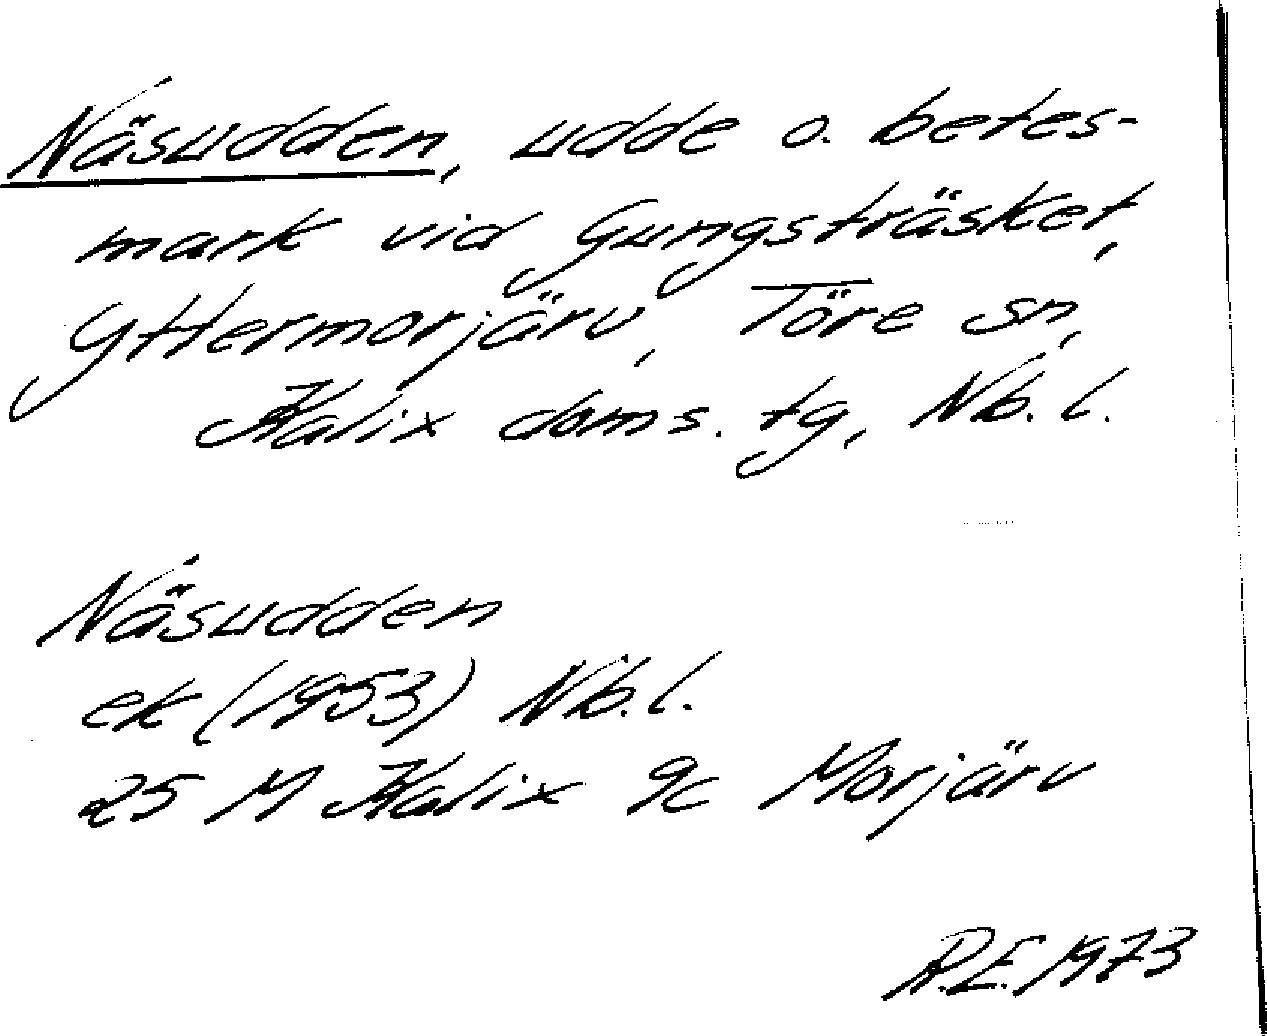 Näsudden, udde o. betes-
mark vid Gungsträsket,
Yttermorjärv, Töre sn,
Kalix doms. tg, Nb. l.
Näsudden
ek (1953) Nb. l.
25 M Kalix 9c Morjärv
R.E. 1973